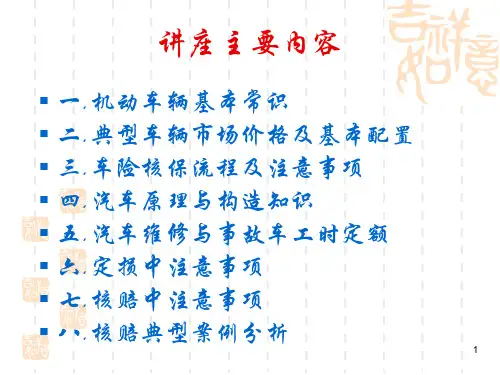 讲座主要内容
吉祥如意
一.机动车辆基本常识
二.典型车辆市场价格及基本配置
三.车险核保流程及注意事项
四.汽车原理与构造知识
五.汽车维修与事故车工时定额
六.定损中注意事项
七.核赔中注意事项
八.核赔典型案例分析
1